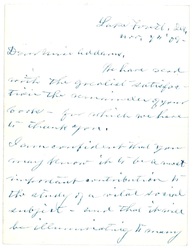 Nov. 22 '09.
Dear Miss Addams,
We have read
with the greatest satisfac-
tion the remainder of your
book - for which we have
to thank you.
I am confident that you
may know it to be a most
important contribution to
the study of a vital social
subject - and that it will
be illuminating to many